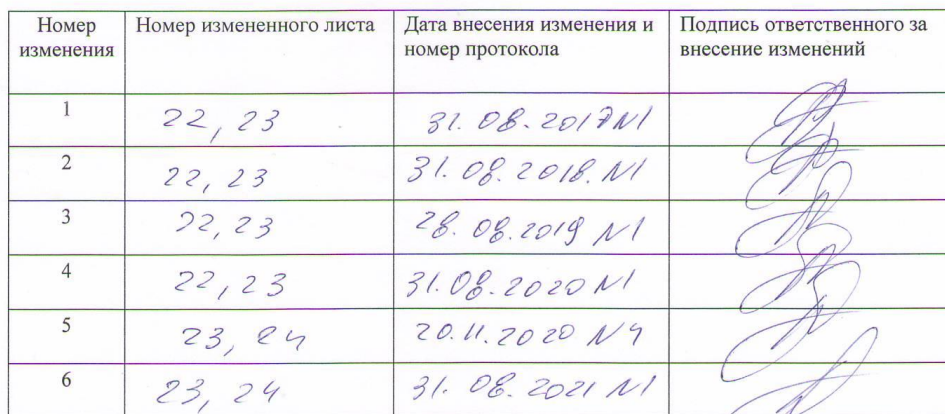 Номер изменения Номер измененного листа Дата внесения изменения и номер протокола Подпись ответственного за внесение изменений
1 22, 23 31.08.2017 N1
2 22, 23 31.08.2018. N1
3 22, 23 28.08.2019 N1
4 22, 23 31.08.2020 N1
5 23, 24 20.11.2020 N4
6 23, 24 31.08.2021 N1